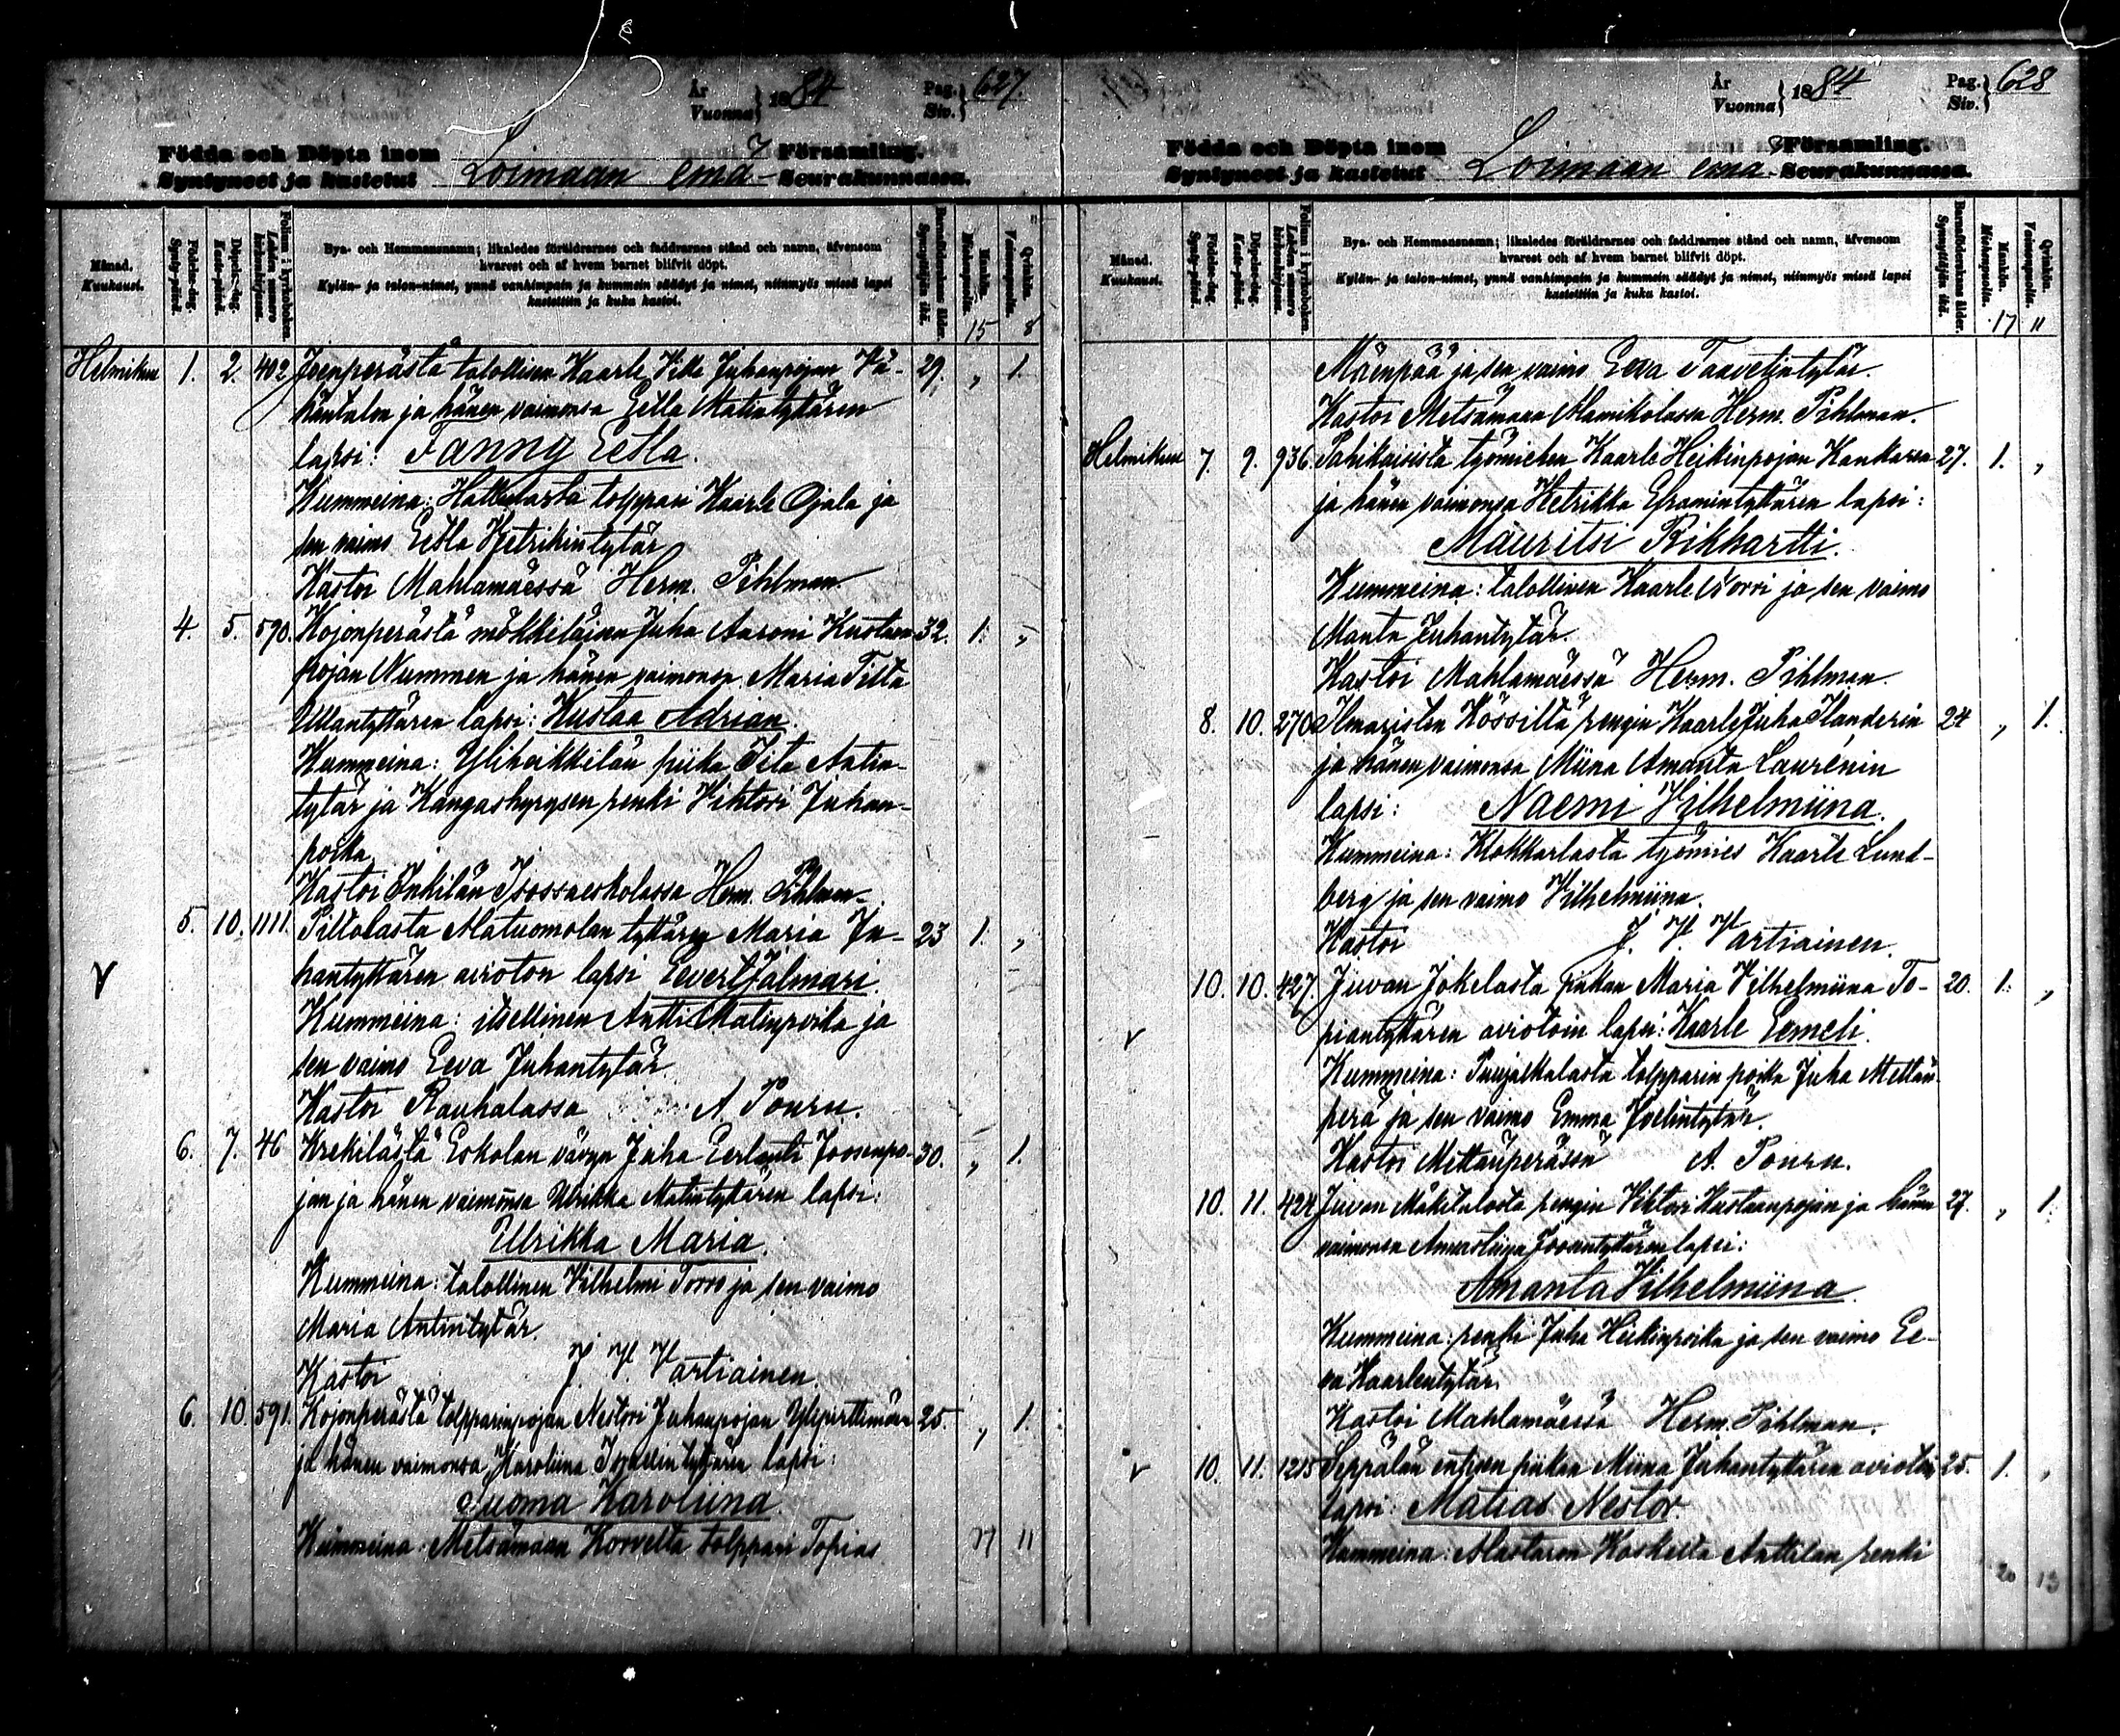 År
Vuonna } 1884
Pag.
Siv. } 627.
Födda och Döpta inom
Syntyneet ja kastetut
Loimaan emä-
Församling.
Seurakunnassa.
Månad.
Kuukausi.
Födelse-dag.
Synty-päivä.
Döpelse-dag.
Kaste-päivä.
Folium i kyrkoboken.
Lehden numero kirkonkirjassa.
Bya- och Hemmansnamn; likaledes föräldrarnes och faddrarnes stånd och namn, äfvensom
hvarest och af hvem barnet blifvit döpt.
Kylän- ja talon-nimet, ynnä vanhimpain ja kummein säädyt ja nimet, niinmyös missä lapsi
kastettiin ja kuka kastoi.
Barnföderskans ålder.
Synnyttäjän ikä.
Mankön.
Miehenpuolia.
Qvinkön.
Vaimonpuolia.
15 8
Helmikuu 1. 2. 402 Joenperästä talollisen Kaarle Ville Juhanpojan Vä- 29. „ 1.
häntalon ja hänen vaimonsa Eetla Matintyttären
lapsi: Fanny Eetla.
Kummeina: torppari Kaarle Ojala ja
sen vaimo Eetla Hetrikintytär
Kastoi Mahlamäessä Herm. Pihlman
4. 5. 590. Kojonperästä mökkiläisen Juha Aaroni Kustaan- 32. 1. „
pojan Nummen ja hänen vaimonsa Maria Tilta
Ullantyttären lapsi: Kustaa Adrian.
Kummeina: Yliheikkilän piika Iita Antin-
tytär ja Kangashyrysen renki Vihtori Juhan-
poika
Kastoi Inkilän Isossaeskolassa Herm. Pihlman
5. 10. 1111. Piltolasta Alatuomolan tyttären Maria Ju- 23 1. „
hantyttären avioton lapsi Eevert Jalmari.
Kummeina: itsellinen Antti Matinpoika ja
sen vaimo Eeva Juhantytär
Kastoi Rauhalassa A. Pouru.
6. 7. 46 Krekilästä Eskolan vävyn Juha Eerlanti Joosenpo- 30. „ 1.
jan ja hänen vaimonsa Ulrikka Matintyttären lapsi:
Ullrikka Maria.
Kummeina: talollinen Vilhelmi Torro ja sen vaimo
Maria Antintytär.
Kastoi J. V. Vartiainen.
6. 10. 591. Kojonperästä torpparinpojan Nestori Juhanpojan Ylipirttimäen 25. „ 1.
ja hänen vaimonsa Karoliina Israelintyttären lapsi:
Suoma Karoliina.
Kummeina: Metsämaan Korvelta torppari Topias
17 11
År
Vuonna } 1884
Pag.
Siv. } 628
Födda och Döpta inom
Syntyneet ja kastetut
Loimaan emä-
Församling.
Seurakunnassa.
Månad.
Kuukausi.
Födelse-dag.
Synty-päivä.
Döpelse-dag.
Kaste-päivä.
Folium i kyrkoboken.
Lehden numero kirkonkirjassa.
Bya- och Hemmansnamn; likaledes föräldrarnes och faddrarnes stånd och namn, äfvensom
hvarest och af hvem barnet blifvit döpt.
Kylän- ja talon-nimet, ynnä vanhimpain ja kummein säädyt ja nimet, niinmyös missä lapsi
kastettiin ja kuka kastoi.
Barnföderskans ålder.
Synnyttäjän ikä.
Mankön.
Miehenpuolia.
Qvinkön.
Vaimonpuolia.
17 11
Mäenpää ja sen vaimo Eeva Taavetintytär.
Kastoi Metsämaan Alamikolassa Herm. Pihlman.
Helmikuu 7. 9. 936. Pahikaisista työmiehen Kaarle Heikinpojan Kankaren 27. 1. „
ja hänen vaimonsa Hetrikka Efraimintyttären lapsi:
Mauritsi Rikhartti.
Kummeina: talollinen Kaarle Norri ja sen vaimo
Manta Juhantytär.
Kastoi Mahlamäessä Herm. Pihlman.
8. 10. 270 Ilmaristen Kössiltä rengin Kaarle Juha Ilanderin 24 „ 1.
ja hänen vaimonsa Miina Amanta Laurénin
lapsi: Naemi Vilhelmiina.
Kummeina: Klokkarlasta työmies Kaarle Lund-
berg ja sen vaimo Vilhelmiina.
Kastoi J. V. Vartiainen.
10. 10. 427. Juvan Jokelasta piikan Maria Vilhelmiina To- 20. 1. „
piantyttären aviotoin lapsi: Kaarle Eemeli.
Kummeina: Puujalkalasta torpparin poika Juha Mettän-
perä ja sen vaimo Emma Joelintytär.
Kastoi Mettänperässä A. Pouru.
10. 11. 424 Juvan Mäkitalosta rengin Vihtori Kustaanpojan ja hänen 27. „ 1.
vaimonsa Amaliina Joosentyttären lapsi:
Amanta Vilhelmiina.
Kummeina: renki Juha Heikinpoika ja sen vaimo Ee-
va Kaarlentytär
Kastoi Mahlamäessä Herm. Pihlman.
10. 11. 1215 Seppälän entisen piikan Miina Juhantyttären aviotoin 25. 1. „
lapsi: Matias Nestor.
Kummeina: Alastaron Koskelta Anttilan renki
20 13